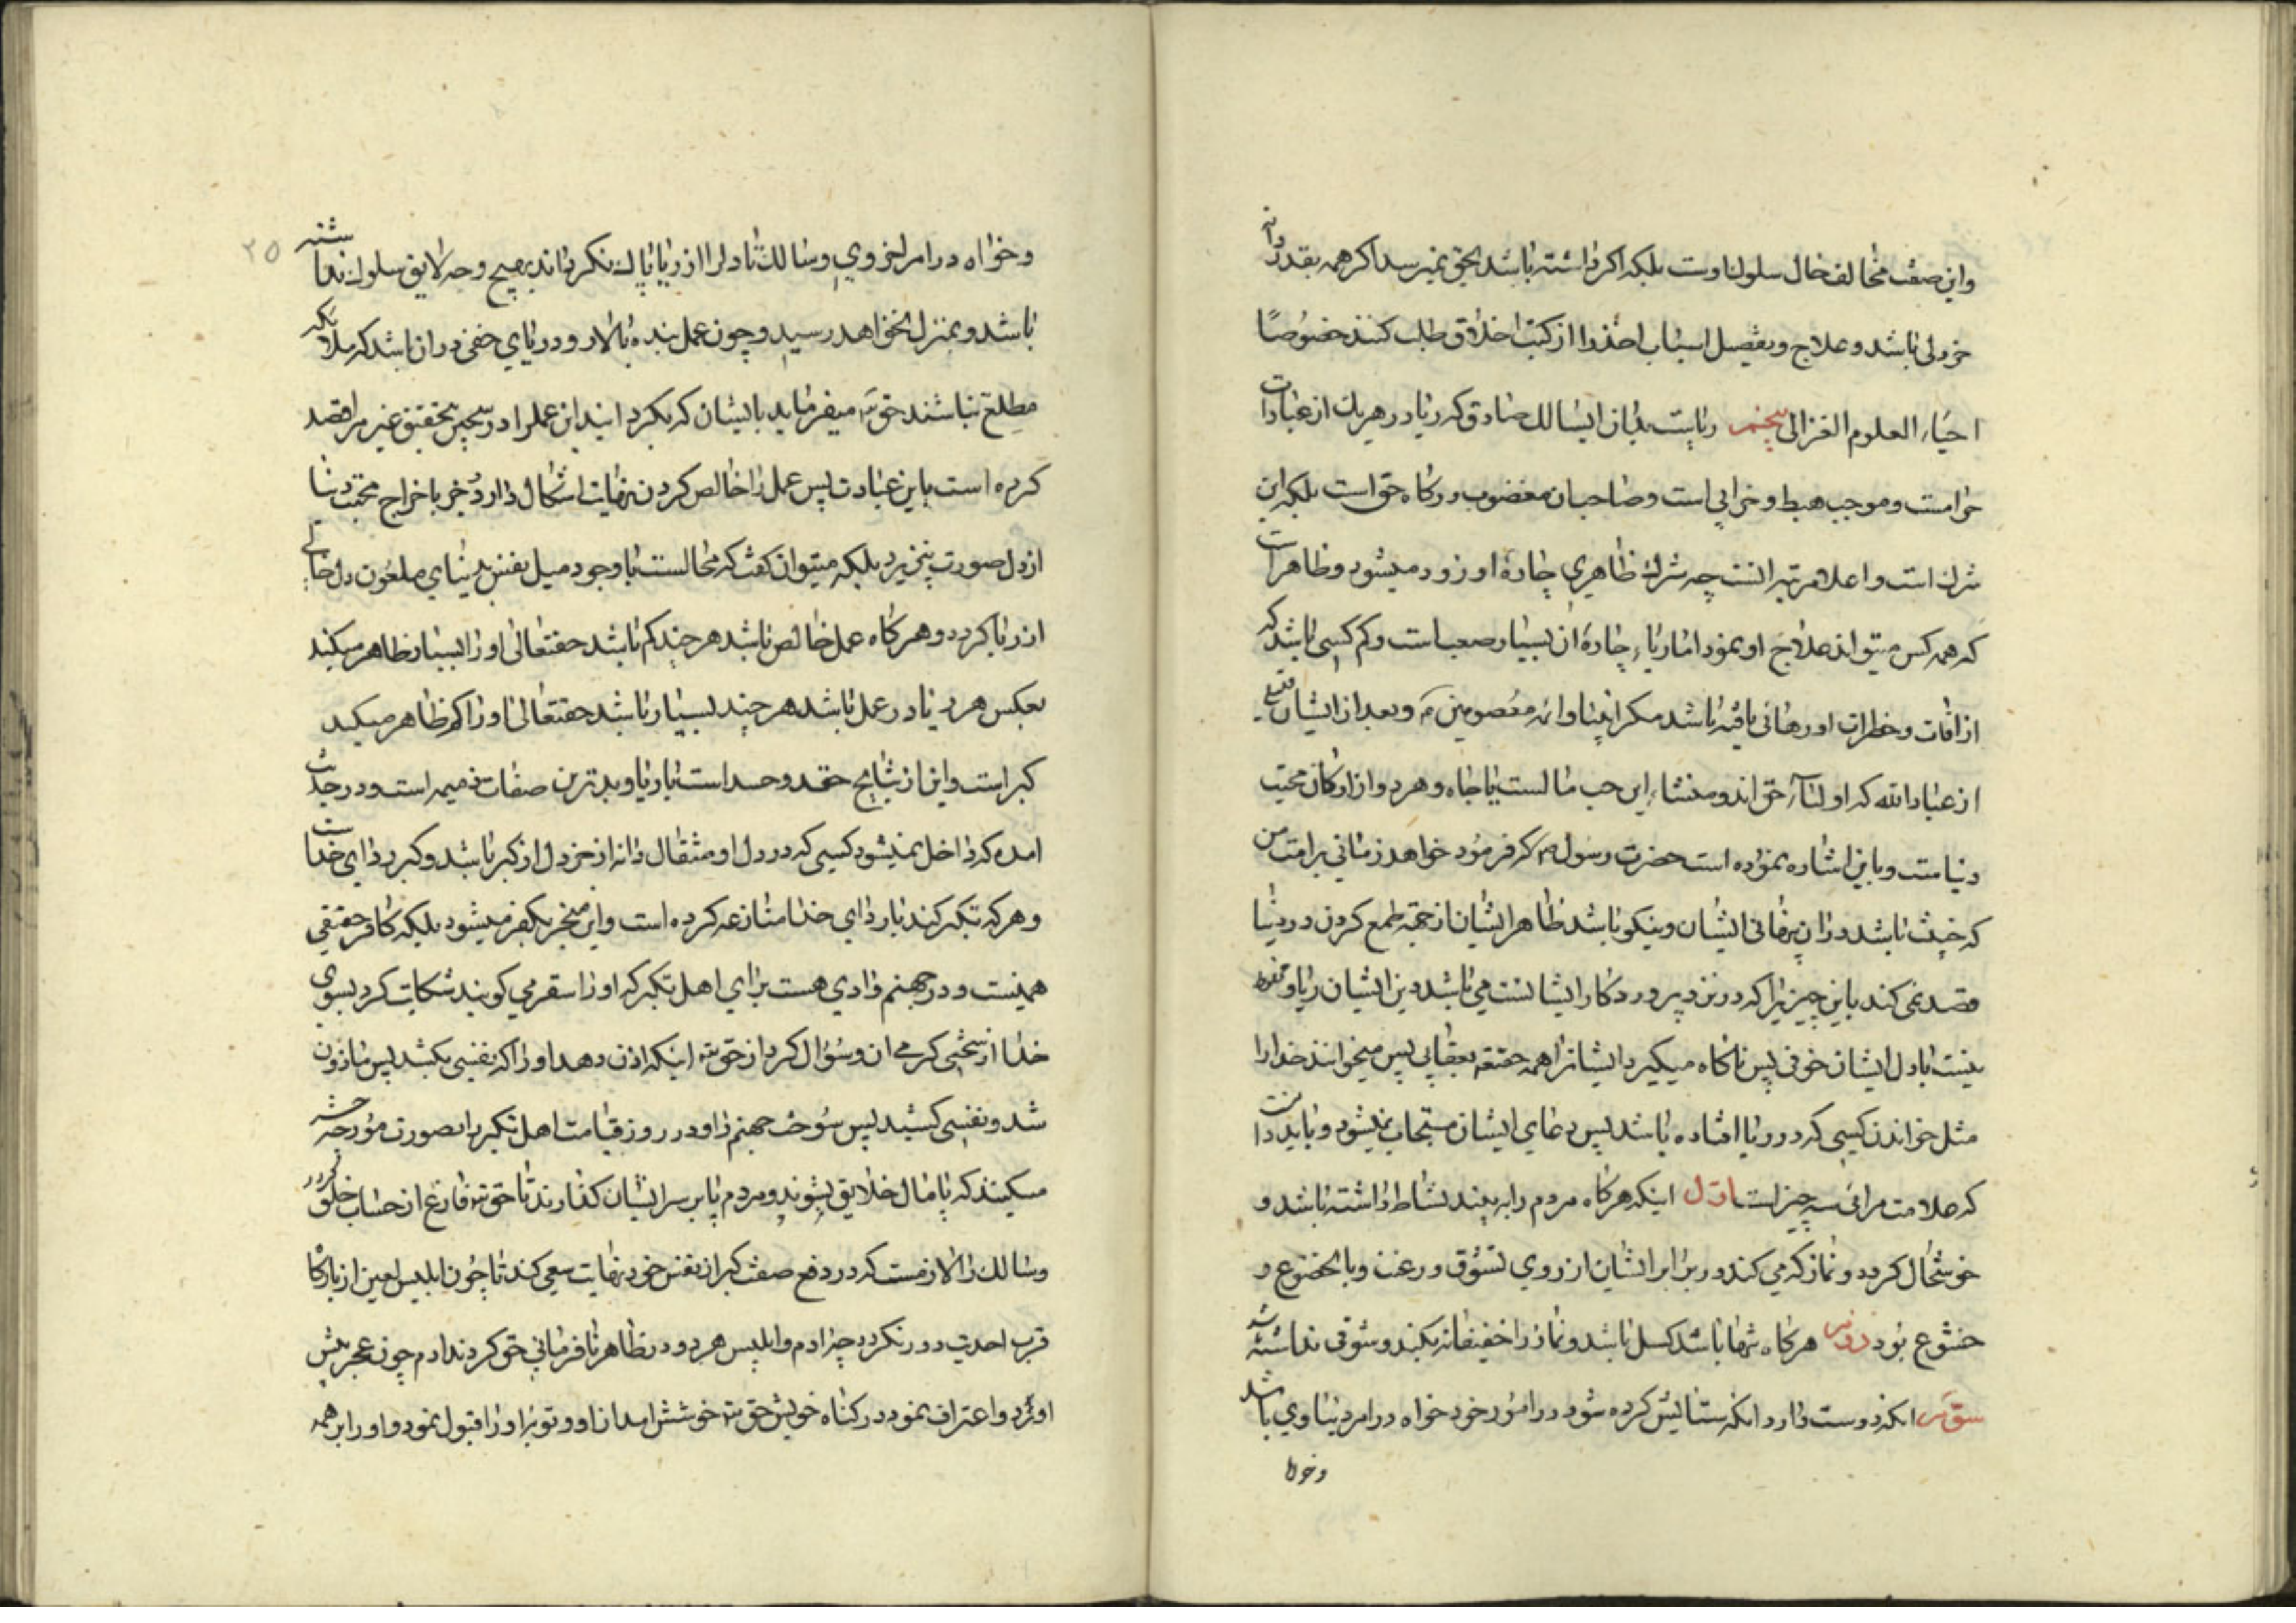 واین صفت مخالف حال سلوک اوست بلکه اگر داشته باشد بحق نمیرسد اگر همه بقدر دانه
خردلی باشد و علاج و تفصیل اسباب اخذ را از کتب اخلاق طلب کنند خصوصًا
احیاء العلوم الغزالی پنجم ریاست بدان ایسالک صادق که ریا در هر یک از عبادات
حرامست و موجب هبط و خرابی است و صاحبان مغضوب درکاه حق است بلکه این
شرک است و اعلا مرتبه انست چه شرک ظاهری چارهٔ او زود میشود و ظاهر است
که همه کس میتواند علاج او نمود اما ریاء چارهٔ ان بسیار صعب است و کم کسی باشد که
از افات و خطرات او رهائی یافته باشد مکر انبیا و ائمه معصومین ع و بعد از ایشان بعضی
از عباد الله که اولیآء حق اند و منشاء این حب مالست یا جاه و هر دو از ارکان محبت
دنیاست و باین اشاره نموده است حضرت رسول ص که فرمود خواهد زمانی بر امت من
که خبیث باشد در ان پنهانی ایشان و نیکو باشد ظاهر ایشان از جهته طمع کردن در دنیا
قصد نمی کند باین چیزیرا که در نزد پروردکار ایشانست می باشد دین ایشان ریا و
نیست با دل ایشان خوفی پس ناکاه میکیرد ایشانرا همه حقتعه بعقابی پس میخوانند خدا را
مثل خواندن کسی که در دریا افتاده باشد پس دعای ایشان مستجاب نمیشود و باید دانست
که علامت مرائی سه چیز است اول اینکه هرکاه مردم را به بیند نشاط داشته باشد و
خوشحال کردد و نماز که می کند در برابر ایشان از روی تشوق و رغبت و با خضوع و
خشوع بود دویم هرکاه تنها باشد کسل باشد و نماز را خفیفانه بکند و شوقی نداشته باشد
سوم انکه دوست دارد انکه ستایش کرده شود در امور خود خواه در امر دنیاوی باشد
وخواه
۲۵
و خواه در امر اخروی و سالک تا دلرا از ریا پاک نکرداند بهیچ وجه لایق سلوک نداشته
باشد و بمنزل نخواهد رسید و چون عمل بنده بالا رود و ریای خفی در ان باشد که ملائکه
مطلع نباشند حق تع میفرماید بایشان که بکردانید این عملرا در سجین بتحقیق غیر مرا قصد
کرده است باین عبادت پس عمل را خالص کردن نهایت اشکال دارد و جز باخراج محبت دنیا
از دل صورت نپذیرد بلکه میتوان کفت که محالست با وجود میل نفس بدنیای ملعون دل خالی
از ریا کردد و هرکاه عمل خالص باشد هر چند کم باشد حقتعالی او را بسیار ظاهر میکند
بعکس هر ریا در عمل باشد هر چند بسیار باشد حقتعالی او را کم ظاهر میکند
کبر است و این از نتایج حقد و حسد است با ریا و بدترین صفات ذمیمه است و در حدیث
امده که داخل نمیشود کسی که در دل او مثقال دانه از خردل از کبر باشد و کبر ردای خداست
و هر که تکبر کند با ردای خدا منازعه کرده است و این منجر بکفر میشود بلکه کافر حقیقی
همینست و در جهنم وادی هست برای اهل تکبر که او را سقر می کویند شکایت کرد بسوی
خدا از سختی کرمی ان و سؤال کرد از حق تع اینکه اذن دهد او را که نفسی بکشد پس ماذون
شد و نفسی کشید پس سوخت جهنم را و در روز قیامت اهل تکبر را بصورت مورچه حشر
میکنند که پامال خلایق بشوند و مردم پا بر سر ایشان کذارند تا حق تع فارغ از حساب خلق کردد
و سالک را لازمست که در دفع صفت کبر از نفس خود نهایت سعی کند تا چون ابلیس لعین از بارکاه
قرب احدیت دور نکردد چرا ادم و ابلیس هر دو در ظاهر نافرمانی حق کردند ادم چون عجز پیش
اورد و اعتراف نمود در کناه خویش حق تع خوشش امد از او و توبه او را قبول نمود و او را بر همه